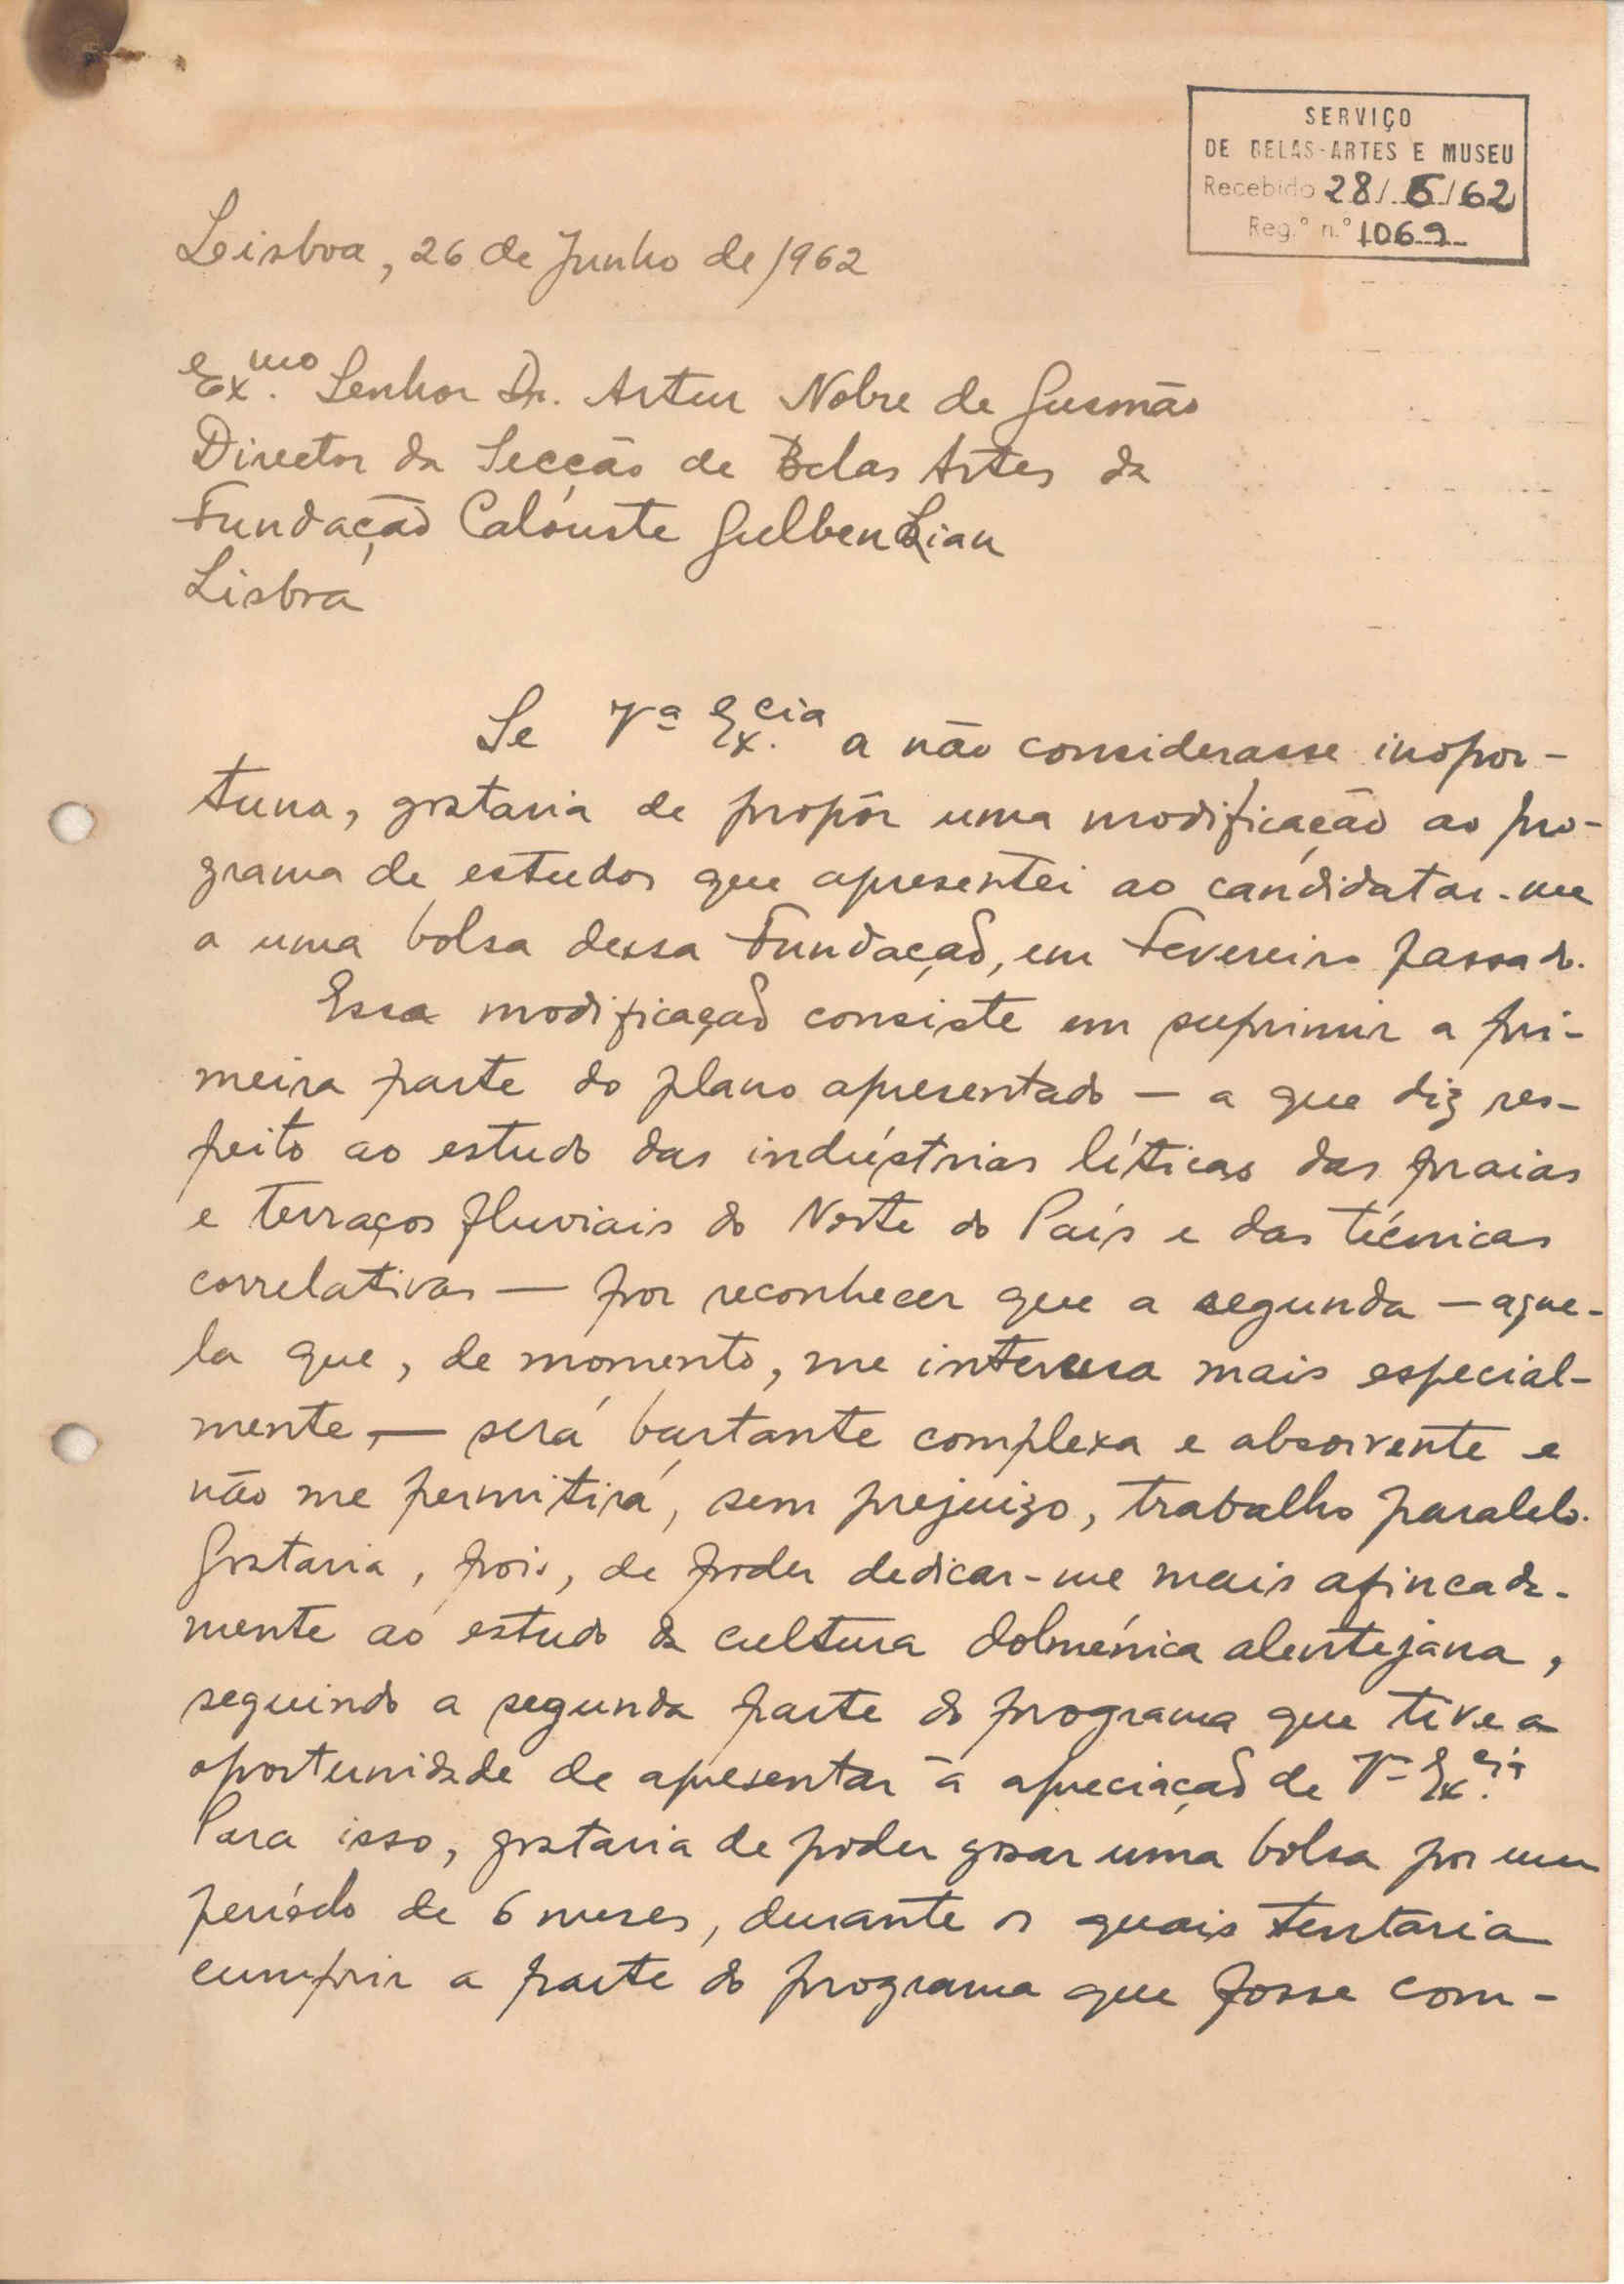 SERVIÇO
DE BELAS-ARTES E MUSEU
Recebido 28/6/62
Reg.º n.º 1069
Lisboa, 26 de Junho de 1962
Ex.mo Senhor Dr. Artur Nobre de Gusmão
Director da Secção de Belas Artes da
Fundação Calouste Gulbenkian
Lisboa
Se Vª Ex.cia a não considerasse inopor-
tuna, gostaria de propôr uma modificação ao pro-
grama de estudos que apresentei ao candidatar-me
a uma bolsa dessa Fundação, em Fevereiro passado.
Essa modificação consiste em suprimir a pri-
meira parte do plano apresentado — a que diz res-
peito ao estudo das indústrias líticas das praias
e terraços fluviais do Norte do País e das técnicas
correlativas — por reconhecer que a segunda — aque-
la que, de momento, me interessa mais especial-
mente — será bastante complexa e absorvente e
não me permitirá, sem prejuizo, trabalho paralelo.
Gostaria, pois, de poder dedicar-me mais afincada-
mente ao estudo da cultura dolménica alentejana,
seguindo a segunda parte do programa que tive a
oportunidade de apresentar à apreciação de Vª Ex.cia
Para isso, gostaria de poder gosar uma bolsa por um
período de 6 meses, durante os quais tentaria
cumprir a parte do programa que fosse com-